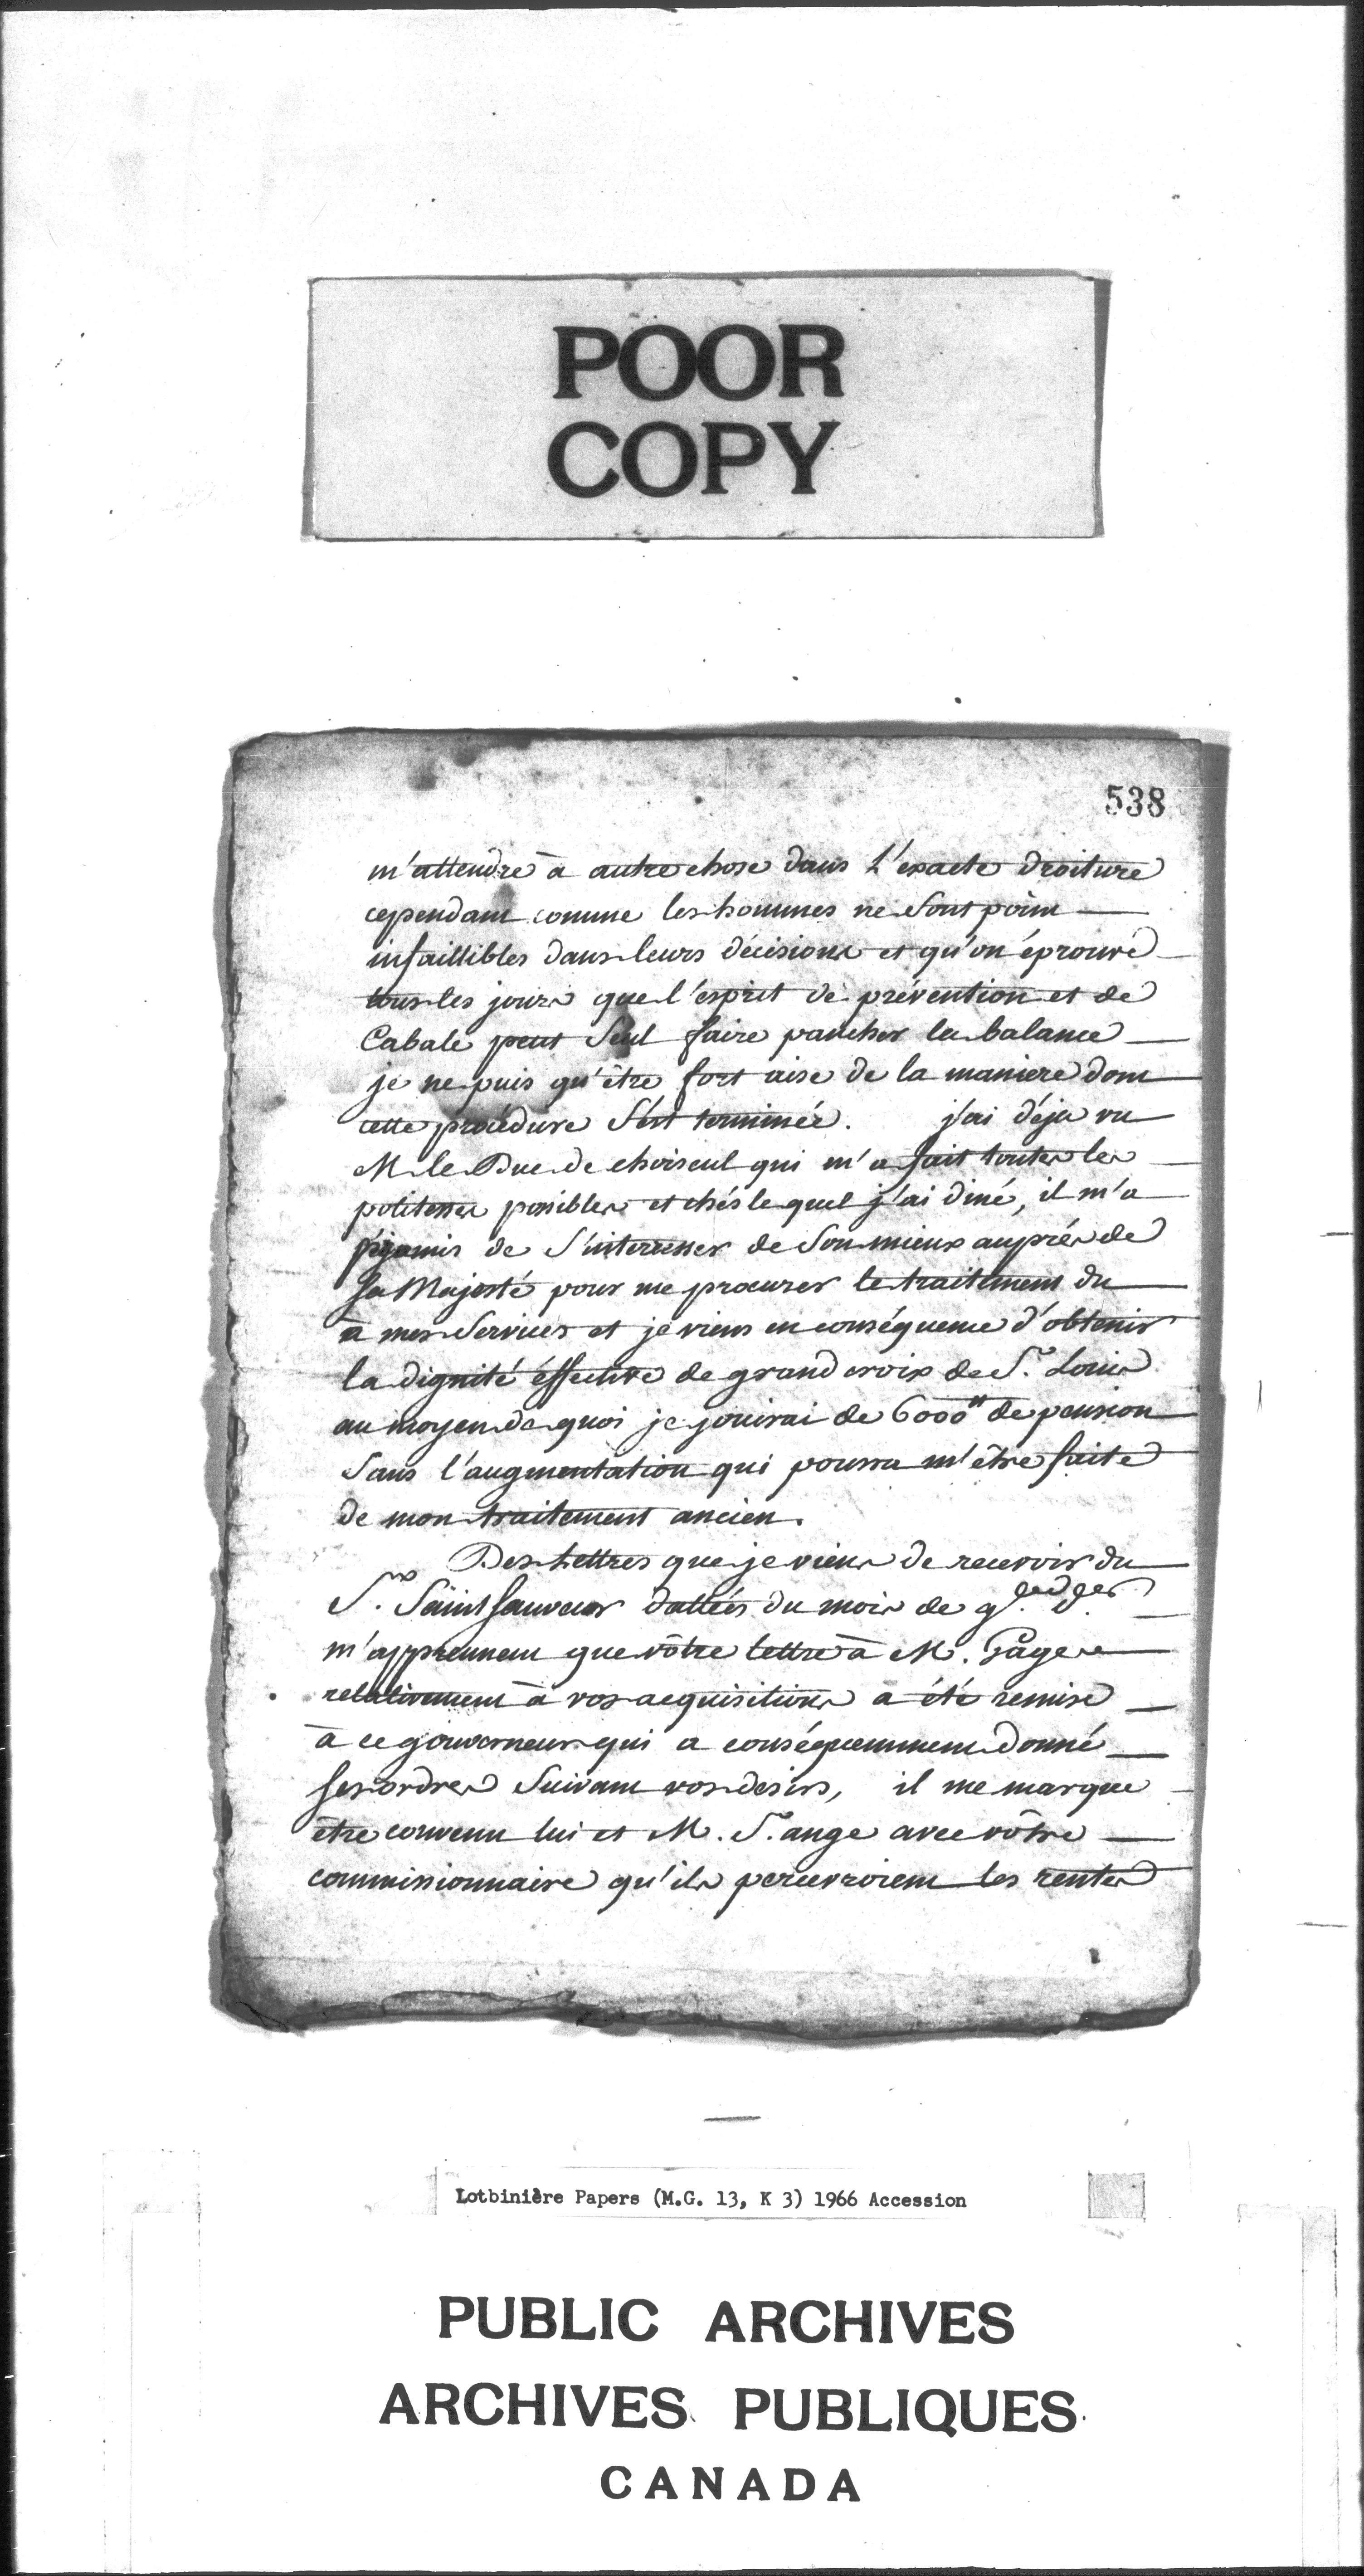 POOR
COPY
538
m'attendre à autre chose dans L'exacte droiture
cependant comme les hommes ne sont point
infaillibles dans leurs décisions et qu'on éprouve
tous les jours que l'esprit de prévention et de
Cabale peut seul faire pancher la balance
je ne puis qu'être fort aise de la maniere dont
cette procédure s'est terminée. j'ai déja vu
M le Duc de choiseul qui m'a fait toutes les
politesses possibles et chés lequel j'ai diné, il m'a
promis de s'interesser de son mieux auprés de
sa Majesté pour me procurer le traitement du
à mes services et je viens en conséquence d'obtenir
la dignité éffective de grand croix de St. Louis
au moyen de quoi je jouirai de 6000 de pension
sans l'augmentation qui pourra m'être faite
de mon traitement ancien.
Des Lettres que je viens de recevoir du
Sr. Saint sauveur dattées du mois de
m'apprennent que vôtre lettre à M. Gage
relativement à vos acquisitions a été remise
à ce gouverneur qui a conséquemment donné
ses ordres suivant vos desirs, il me marque
être convenu lui et M. St. ange avec vôtre
commissionnaire qu'ils percevroient les rentes
Lotbinière Papers (M.G. 13, K 3) 1966 Accession
PUBLIC ARCHIVES
ARCHIVES PUBLIQUES
CANADA